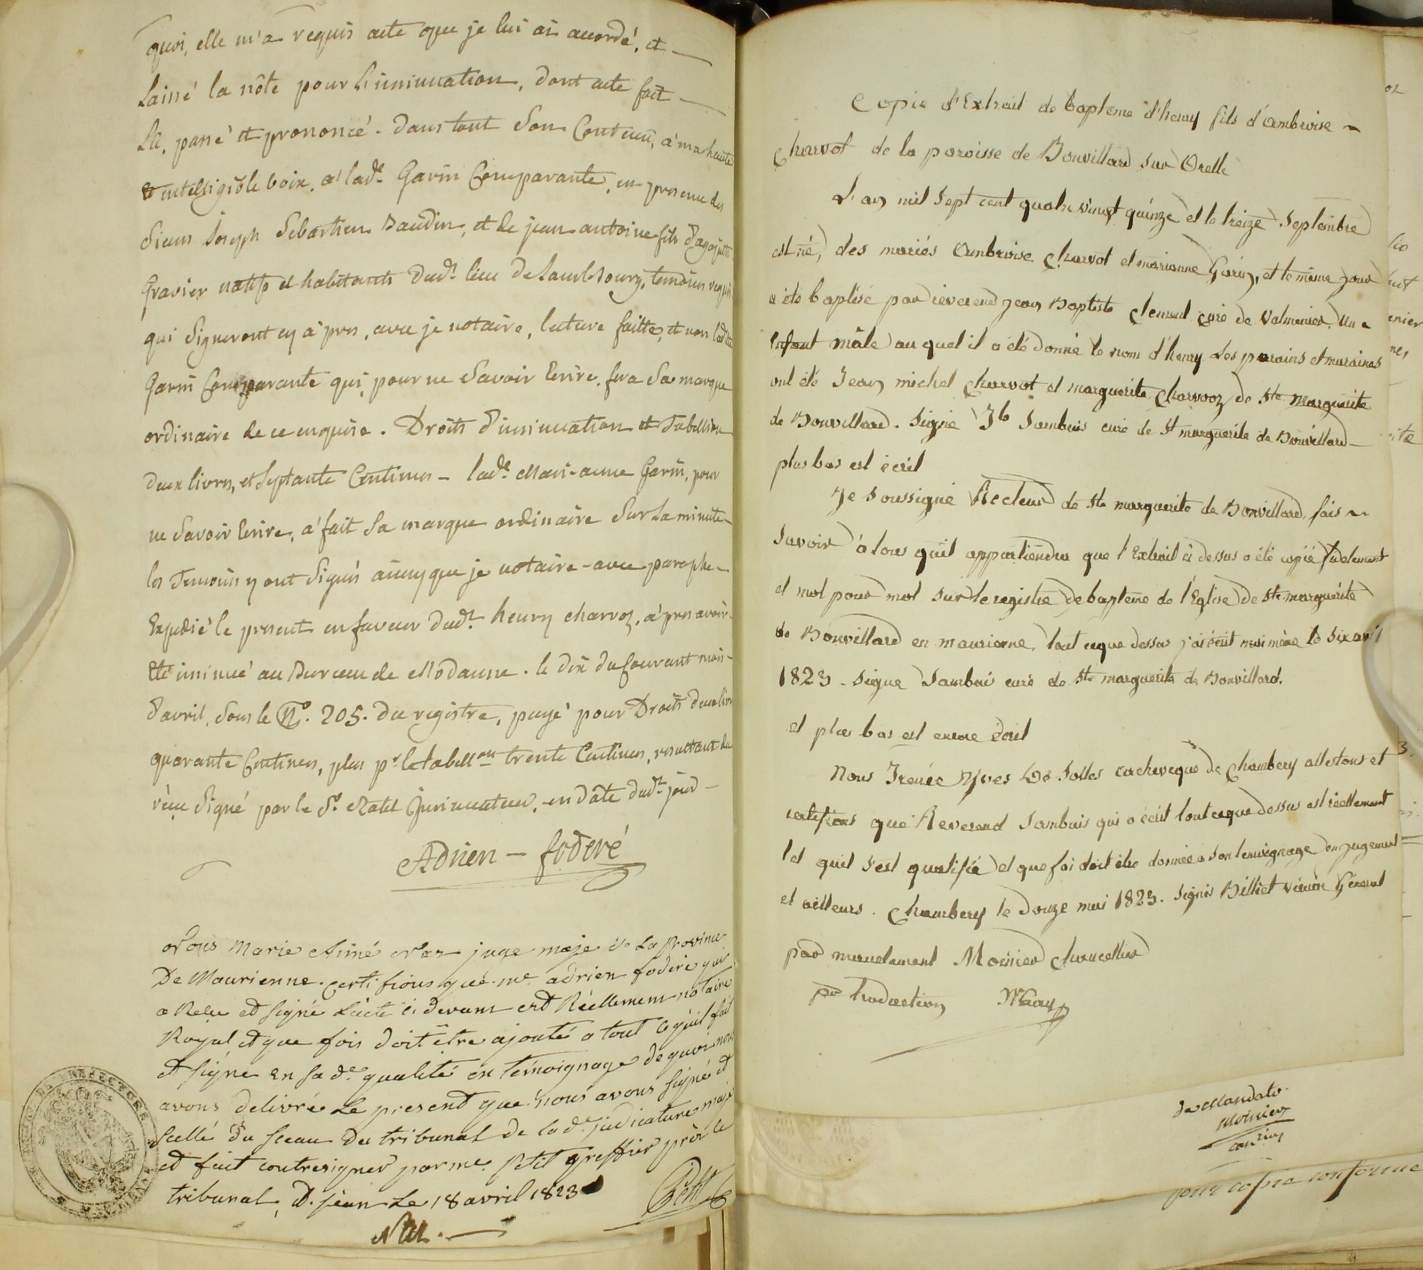 quoi, elle m'a requis acte que je lui ai accordé, et
laissé la nôte pour l'insinuation, dont acte fait
lu, passé et prononcé. dans tout son contenu, à ma haute
et intelligible voix, a lad.e Garin Comparante, en presence des
sieurs Joseph Sebastien Baudin, et de jean antoine fils d'
Gravier natifs et habitants dud.t lieu de, temoins requis
qui signeront cy après, avec je notaire, lecture faitte, et non lad.te
Garin Comparante qui, pour ne savoir écrire, fera sa marque
ordinaire de ce enquise. Droits d'insinuation et tabellion
deux livres, et septante Centimes - lad.e Mari-anne Garin, pour
ne savoir Ecrire, a fait sa marque ordinaire sur la minutte
les temoins y ont signés ainsy que je notaire - avec paraphe -
Expedié le present en faveur dud.t henry charvoz, après avoir
été insinué au Bureau de Modanne. le dix du Courant mois
d'avril, sous le N.o 205. du registre, payé pour Droits deux livres
quarante Centimes, plus p.r le tabell.on trente Centimes, resultant du
réçu signé par le S.r Ratel Insinuateur, en date dud.t jour -
Adrien - foderé
Nous Marie Aimé juge maje de la Province
De Maurienne certifions que m.e adrien foderé qui
a Reçu et signé l'acte ci devant est Réellement notaire
Royal et que fois doit être ajouté a tout ce qu'il fait
et signe en sa d.e qualité en témoignage de quoi nous
avons delivré Le present que nous avons signé et
scellé du sceau du tribunal de la d.e judicature maje
et fait contresigner par m.e Petit greffier près le
tribunal, St jean Le 18 avril 1823
Petit
Copie d'Extrait de baptême d'henry fils d'ambroise
Charvot de la paroisse de Bonvillard sur Orelle
L'an mil sept cent quatre vingt quinze et le treize septembre
est né, des mariés Ambroise Charvot et marianne Garin, et le même jour
a été baptisé par réverend jean Baptiste Clement curé de Valmenier. Un
Enfant mâle au quel il a été donné le nom d'henry Les parains et maraines
ont été Jean michel Charvot et marguerite Charvoz de Ste Marguerite
de Bonvillard. Signé Jh Sambuis curé de St marguerite de Bonvillard
plus bas est écrit
Je soussigné Recteur de Ste marguerite de Bonvillard, fais
savoir à tous qu'il appartiendra que l'Extrait ci dessus a été copié fidelement
et mot pour mot sur le registre de baptême de l'Eglise de Ste marguerite
de Bonvillard en maurienne, tout ceque dessus j'ai écrit moi même le six avril
1823. Signé Sambuis curé de Ste marguerite de Bonvillard.
et plus bas est encore écrit
Nous Irenée Yves De Solles archeveque de Chambery attestons et
certifions que Reverend Sambuis qui a écrit tout ceque dessus est réellement
tel qu'il s'est qualifié et que foi doit être donnée a son temoignage en jugement
et ailleurs. Chambery le douze mai 1823. Signés Billiet vicaire Général
par mandement Moinier Chancellier
pr traduction
De Mandato
Moinier
pour copie conforme